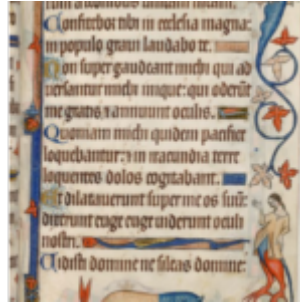 a leonibus unicam meam.
Confitebor tibi in ecclesia magna:
in populo graui laudabo te.
Non super gaudeant michi qui ad
uersantur michi inique: qui oderūt
me gratis ⁊ annuunt oculis.
Quoniam michi quidem pacifice
loquebantur: ⁊ in iracundia terre
loquentes dolos cogitabant.
Et dilatauerunt super me os suū:
dixerunt euge euge uiderunt oculi
nostri.
Uidisti domine ne sileas domine: